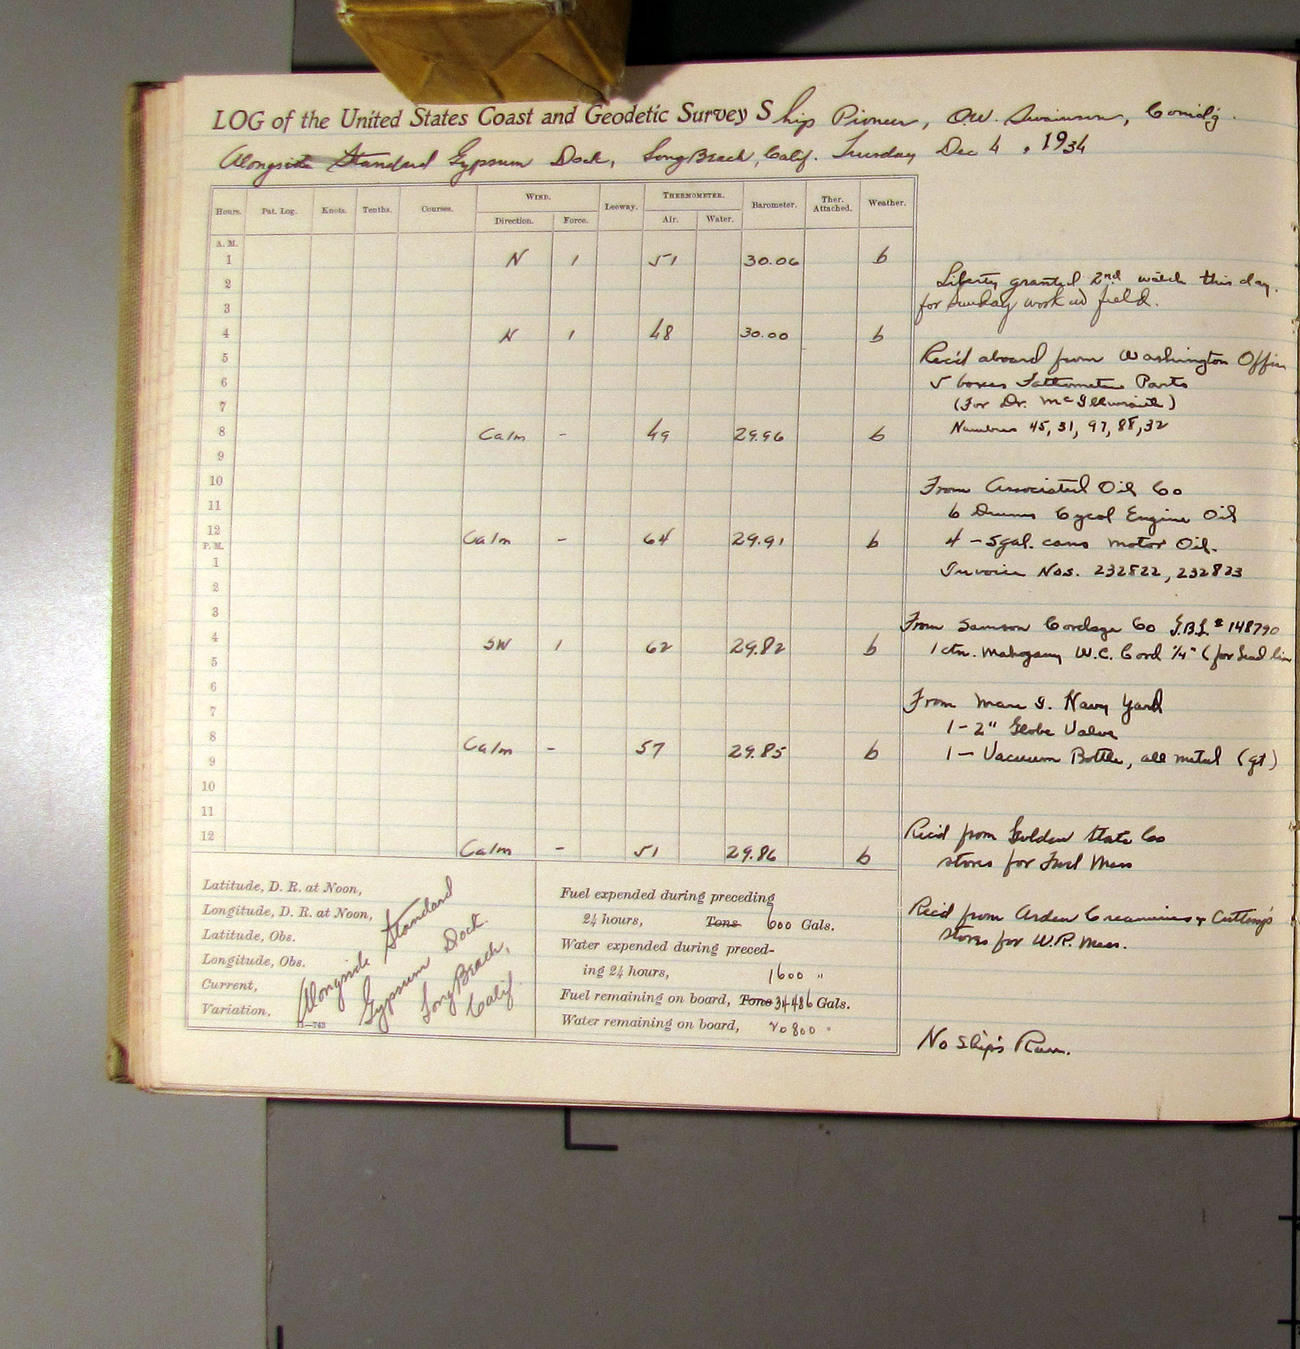 LOG of the United States Coast and Geodetic Survey Ship Pioneer, O.W. Swainson, Comd'g.
Alongside Standard Gypsum Dock, Long Beach, Calif. Tuesday Dec 4, 1934
Hours. Pat. Log. Knots. Tenths. Courses. WIND. Leeway. THERMOMETER. Barometer. Ther. Attached. Weather.
Direction. Force. Air. Water.
A. M.
1 N 1 51 30.06 b
2
3
4 N 1 48 30.00 b
5
6
7
8 Calm - 49 29.96 b
9
10
11
12 Calm - 64 29.91 b
P. M.
1
2
3
4 SW 1 62 29.82 b
5
6
7
8 Calm - 57 29.85 b
9
10
11
12 Calm - 51 29.86 b
Liberty granted 2nd watch this day.
for Sunday work in field.
Rec'd aboard from Washington Office
5 boxes Fathometer Parts
(For Dr. McIlwraith)
Numbers 45, 31, 97, 88, 32
From Associated Oil Co
6 Drums Cycol Engine Oil
4 - 5gal. cans motor Oil.
Invoice Nos. 232822, 232823
From Samson Cordage Co G.B.L # 148790
1 ctn. Mahogany W.C. Cord 1/4" (for lead line
From Mare I. Navy Yard
1 - 2" Globe Valve
1 - Vacuum Bottle, all metal (qt)
Rec'd from Golden State Co
stores for Mess
Rec'd from Arden Creameries & Cutting's
stores for W.R. Mess.
No ship's Run.
Latitude, D. R. at Noon,
Longitude, D. R. at Noon,
Latitude, Obs.
Longitude, Obs.
Current,
Variation,
11—743
Alongside Standard
Gypsum Dock
Long Beach,
Calif.
Fuel expended during preceding
24 hours, Tons 600 Gals.
Water expended during preced-
ing 24 hours, 1600 "
Fuel remaining on board, Tons 34486 Gals.
Water remaining on board, 20800 "